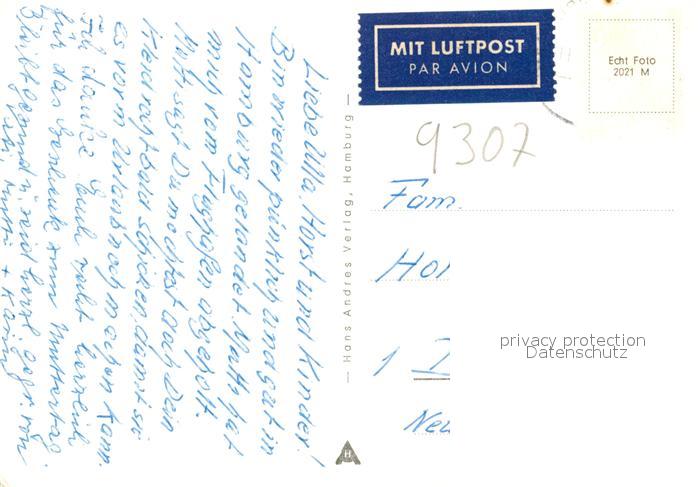 Liebe Ulla, Horst und Kinder!
Bin wieder pünktlich und gut in
Hamburg gelandet. Mutti hat
mich vom Flughafen abgeholt.
Mutti sagt Du möchtest doch Dein
schicken, damit sie
Es vorm Urlaub noch machen kann.
danke Euch recht herzlich
für das Geschenk zum Muttertag.
u. sind herzl. gegr. von
Mutti + Karin
— Hans Andres Verlag, Hamburg —
H
MIT LUFTPOST
PAR AVION
Echt Foto
2021 M
9307
Fam.
Hor
1
Neu
privacy protection
Datenschutz